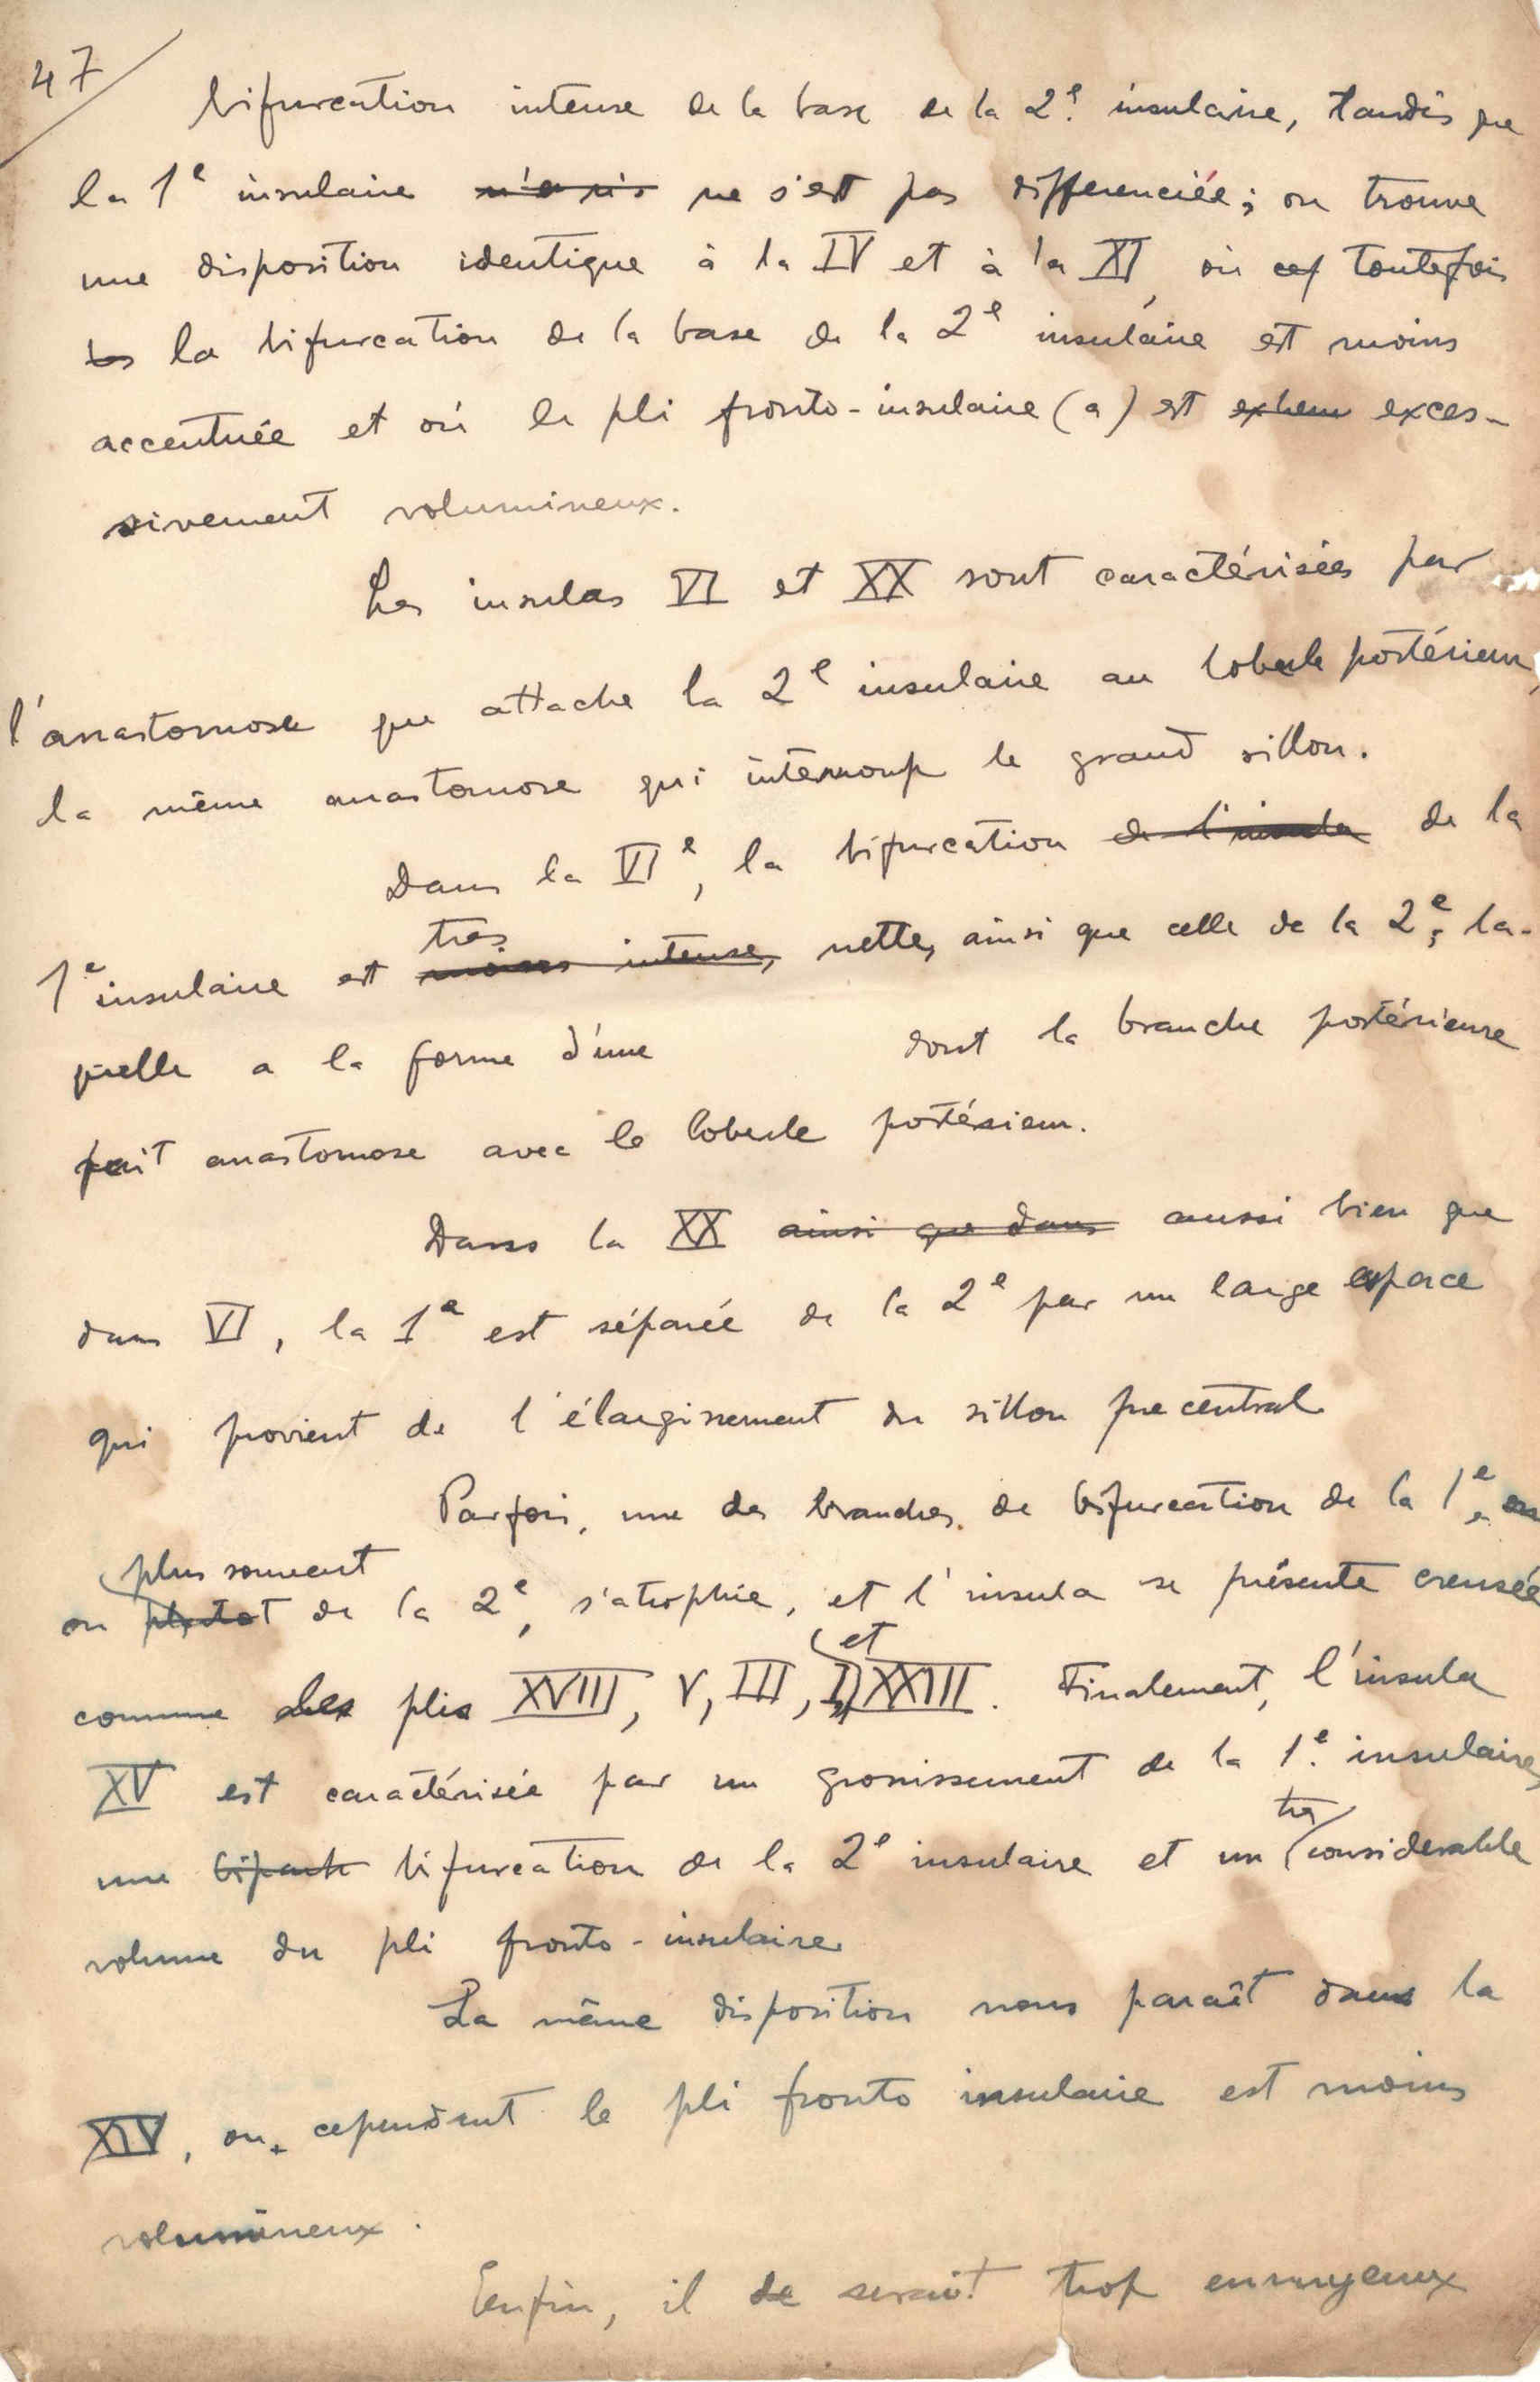 47
bifurcation intense de la base de la 2e insulaire, tandis que
la 1e insulaire ne s'est pas differenciée; on trouve
une disposition identique à la IV et à la XI, où toutefois
la bifurcation de la base de la 2e insulaire est moins
accentuée et où le pli fronto-insulaire (a) est exces-
sivement volumineux.
Les insulas VI et XX sont caractérisées par
l'anastomose que attache la 2e insulaire au lobule postérieur,
la même anastomose qui interroup le grand sillon.
Dans la VIe, la bifurcation de l'insula de la
très
1e insulaire est moins intense, nette, ainsi que celle de la 2e, la-
quelle a la forme d'une dont la branche postérieure
fait anastomose avec le lobule postérieur.
Dans la XX ainsi que dans aussi bien que
dans VI, la 1e est séparée de la 2e par un large espace
qui provient de l'élargissement du sillon precentral
Parfois, une des branches de bifurcation de la 1e,
plus souvent
ou plutot de la 2e, s'atrophie, et l'insula se présente creusée
et
comme les plis XVIII, V, III, I, XXIII. Finalement, l'insula
XV est caractérisée par un grossissement de la 1e insulaire,
très
une bifurcation de la 2e insulaire et un considerable
volume du pli fronto-insulaire
La même disposition nous paraît dans la
XIV, ou cependant le pli fronto insulaire est moins
volumineux.
Enfin, il de serait trop ennuyeux